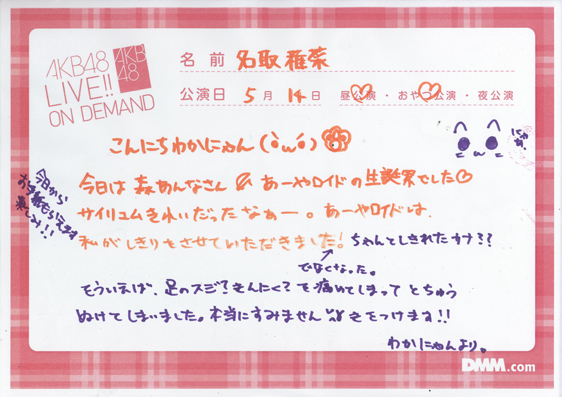 AKB48
LIVE!!
ON DEMAND
AKB
48
名前 名取稚菜
公演日 5月14日 昼公演・おやつ公演・夜公演
こんにちわかにゃん(òωó)
にゃあ。
今日は森あんなさん あーやロイドの生誕祭でした♡
サイリュムきれいだったなぁー。あーやロイドは、
私がしきりをさせていただきました! ちゃんとしきれたカナ??
でなくなった。
今日から
お手紙もらえます
楽しみ!!
そういえば、足のスジ?きんにく?を痛めてしまってとちゅう
ぬけてしまいました。本当にすみません 気をつけます!!
わかにゃんより。
DMM.com